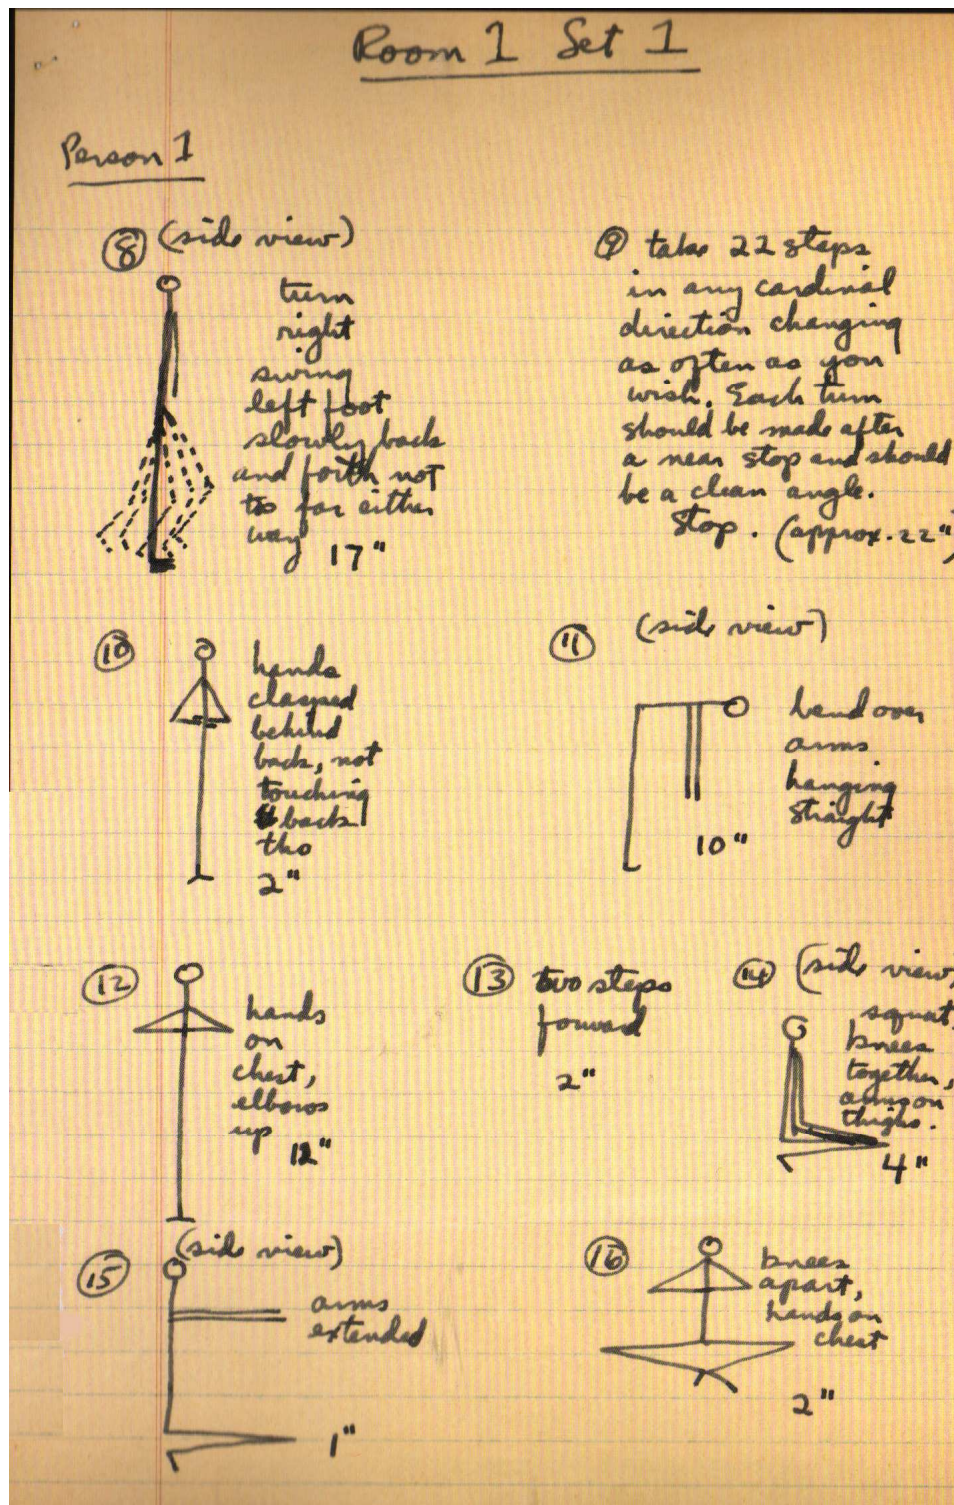 Room 1 Set 1
Person 1
8 (side view)
turn
right
swing
left foot
slowly back
and forth not
too far either
way 17"
9 take 22 steps
in any cardinal
direction changing
as often as you
wish. Each turn
should be made after
a near stop and should
be a clean angle.
Stop. (approx. 22")
10
hands
clasped
behind
back, not
touching
back
tho
2"
11 (side view)
bend over
arms
hanging
straight
10"
12
hands
on
chest,
elbows
up
12"
13 two steps
forward
2"
14 (side view)
squat,
knees
together,
arms on
thighs.
4"
15 (side view)
arms
extended
1"
16 knees
apart,
hands on
chest
2"